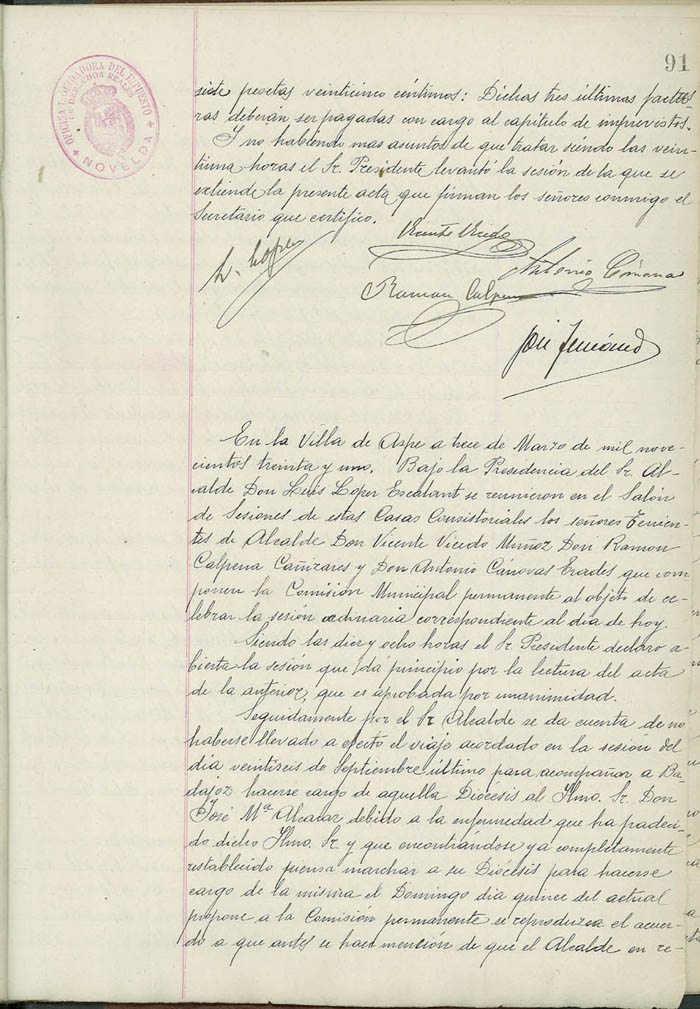 91
OFICINA LIQUIDADORA DEL IMPUESTO
DE DERECHOS REALES
NOVELDA
siete pesetas veinticinco céntimos: Dichas tres últimas factu-
ras deberán ser pagadas con cargo al capítulo de imprevistos.
Y no habiendo mas asuntos de que tratar siendo las vein-
tiuna horas el Sr. Presidente levantó la sesión de la que se
extiende la presente acta que firman los señores conmigo el
Secretario que certifico.
Vicente Vicedo
L. Lopez
Antonio Cánovas
Ramon Calpena
José
En la Villa de Aspe a trece de Marzo de mil nove-
cientos treinta y uno, Bajo la Presidencia del Sr. Al-
calde Don Luis Lopez Escalant se reunieron en el Salón
de Sesiones de estas Casas Consistoriales los señores Tenien-
tes de Alcalde Don Vicente Vicedo Muñoz Don Ramon
Calpena Cañizares y Don Antonio Cánovas Erades que com
ponen la Comisión Municipal permanente al objeto de ce-
lebrar la sesión ordinaria correspondiente al dia de hoy.
Siendo las diez y ocho horas el Sr. Presidente declaro a-
bierta la sesión que dá principio por la lectura del acta
de la anterior, que es aprobada por unanimidad.
Seguidamente por el Sr. Alcalde se da cuenta de no
haberse llevado a efecto el viaje acordado en la sesión del
día veintiseis de Septiembre último para acompañar a Ba-
dajoz hacerse cargo de aquella Diócesis al Ilmo. Sr. Don
José Mª Alcaraz debido a la enfermedad que ha padeci-
do dicho Ilmo. Sr. y que encontrándose ya completamente
restablecido piensa marchar a su Diócesis para hacerse
cargo de la misma el Domingo dia quince del actual
propone a la Comisión permanente se reproduzca el acuer-
do a que antes se hace mención de que el Alcalde en re-